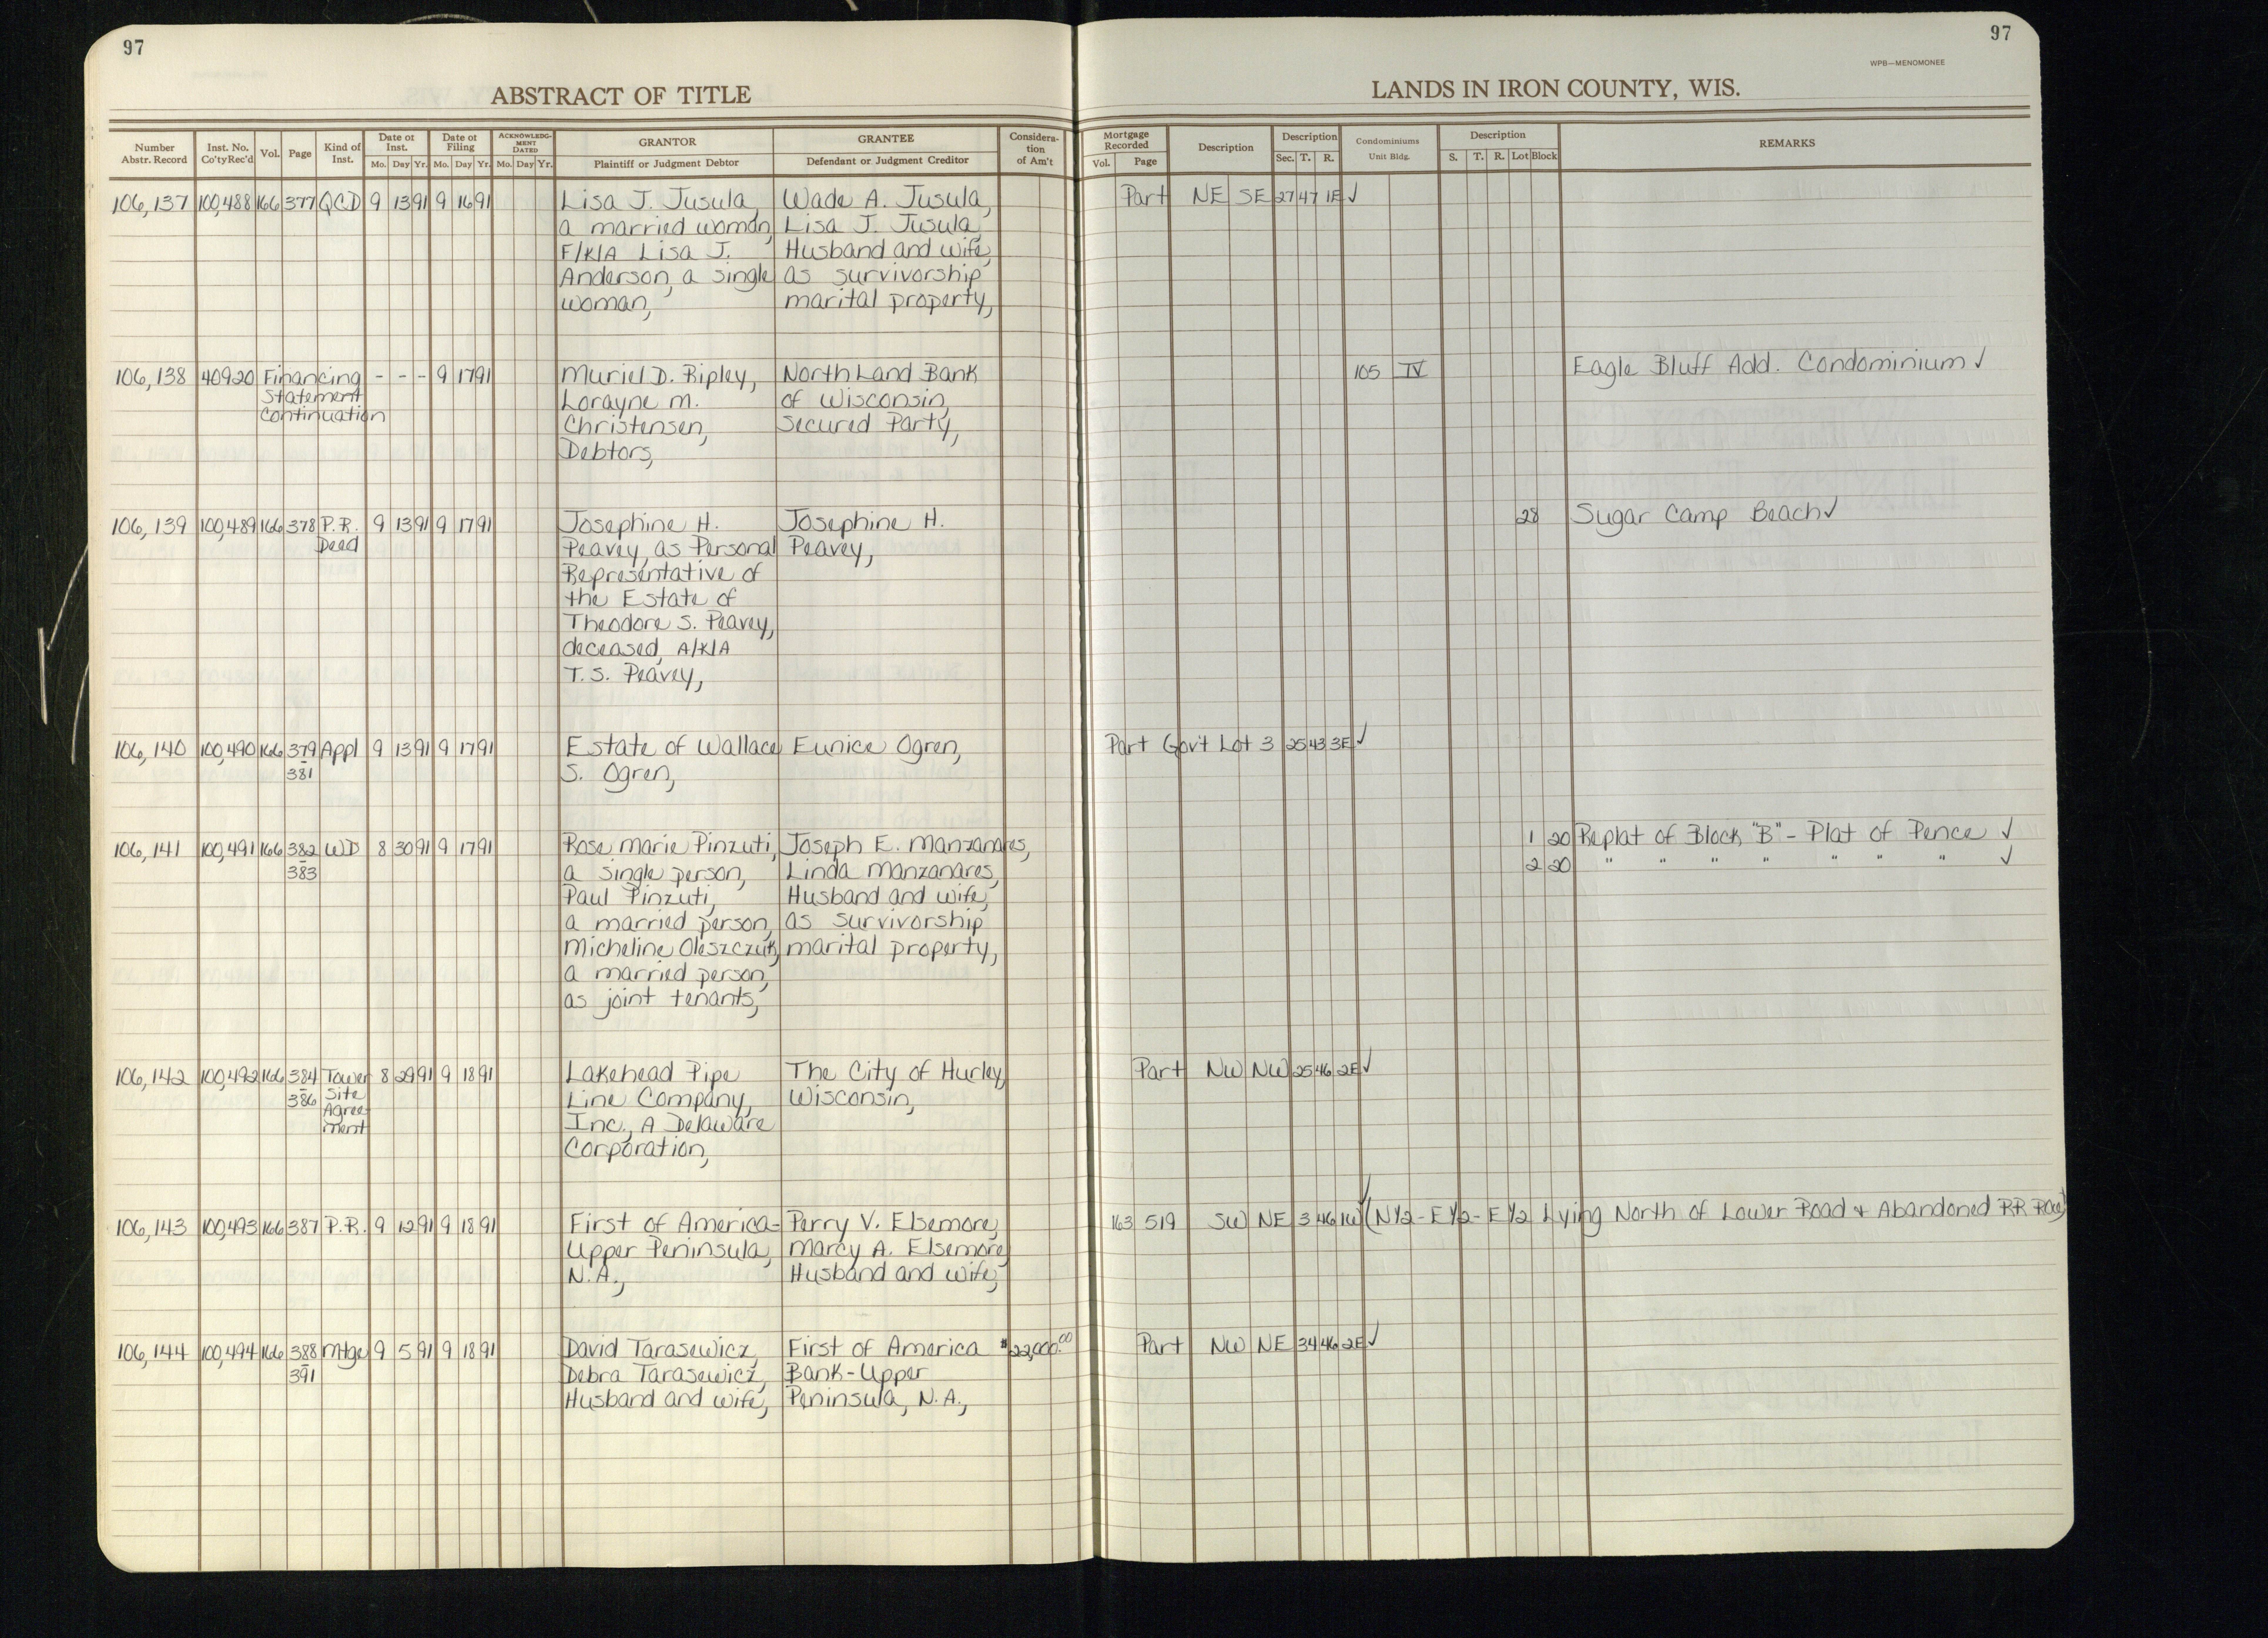 97
97
WPB—MENOMONEE
ABSTRACT OF TITLE
LANDS IN IRON COUNTY, WIS.
Number Abstr. Record
Inst. No. Co'ty Rec'd
Vol.
Page
Kind of Inst.
Date of Inst.
Mo. Day Yr.
Date of Filing
Mo. Day Yr.
ACKNOWLEDG-MENT DATED
Mo. Day Yr.
GRANTOR
Plaintiff or Judgment Debtor
GRANTEE
Defendant or Judgment Creditor
Considera-tion of Am't
Mortgage Recorded
Vol. Page
Description
Description
Sec. T. R.
Condominiums
Unit Bldg.
Description
S. T. R. Lot Block
REMARKS
106,137 100,488 166 377 QCD 9 13 91 9 16 91 Lisa J. Jusula, Wade A. Jusula, Part NE SE 27 47 1E ✓
a married woman, Lisa J. Jusula,
F/K/A Lisa J. Husband and wife,
Anderson, a single as survivorship
woman, marital property,
106,138 40920 Financing - - - 9 17 91 Muriel D. Ripley, North Land Bank 105 IV Eagle Bluff Add. Condominium ✓
Statement Lorayne M. of Wisconsin,
Continuation Christensen, Secured Party,
Debtors,
106,139 100,489 166 378 P.R. 9 13 91 9 17 91 Josephine H. Josephine H. 28 Sugar Camp Beach ✓
Deed Peavey, as Personal Peavey,
Representative of
the Estate of
Theodore S. Peavey,
deceased, A/K/A
T. S. Peavey,
106,140 100,490 166 379 Appl 9 13 91 9 17 91 Estate of Wallace Eunice Ogren, Part Gov't Lot 3 25 43 3E ✓
- 381 S. Ogren,
106,141 100,491 166 382 WD 8 30 91 9 17 91 Rose Marie Pinzuti, Joseph E. Manzanares, 1 20 Replat of Block "B" - Plat of Pence ✓
- 383 a single person, Linda Manzanares, 2 20 " " " " " " " ✓
Paul Pinzuti, Husband and wife,
a married person, as survivorship
Micheline Oleszczuk, marital property,
a married person,
as joint tenants,
106,142 100,492 166 384 Tower 8 29 91 9 18 91 Lakehead Pipe The City of Hurley, Part NW NW 25 46 2E ✓
- 386 Site Line Company, Wisconsin,
Agree Inc., A Delaware
ment Corporation,
106,143 100,493 166 387 P.R. 9 12 91 9 18 91 First of America- Perry V. Elsemore, 163 519 SW NE 3 46 1W ✓ (N½ - E½ - E½ Lying North of Lower Road & Abandoned RR Row)
Upper Peninsula, Marcy A. Elsemore,
N.A., Husband and wife,
106,144 100,494 166 388 Mtge 9 5 91 9 18 91 David Tarasewicz, First of America $22,000.00 Part NW NE 34 46 2E ✓
- 391 Debra Tarasewicz, Bank-Upper
Husband and wife, Peninsula, N.A.,